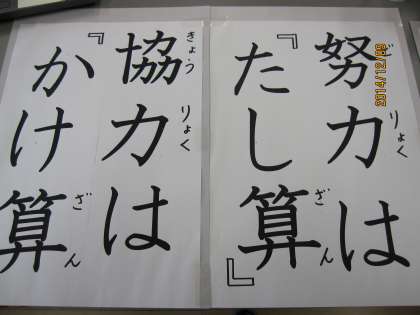 努力は
ど
りょく
『たし算』
ざん
協力は
きょう
りょく
『かけ算
ざん
2014/12/09